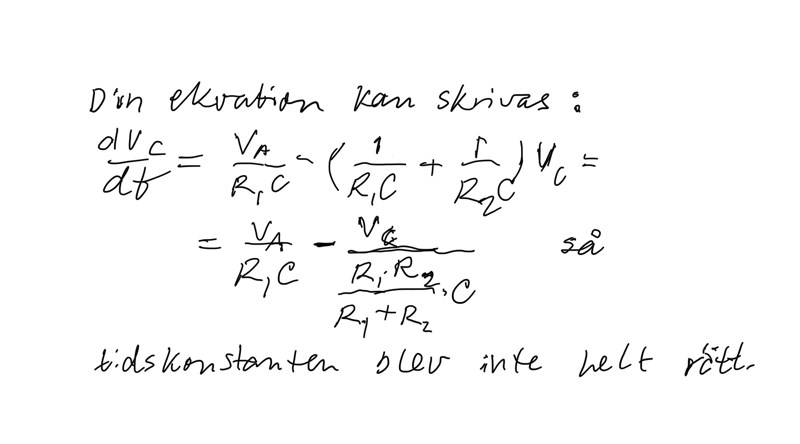 Din ekvation kan skrivas:
dV_C/dt = V_A/(R_1 C) - (1/(R_1 C) + 1/(R_2 C)) V_C =
= V_A/(R_1 C) - V_C/((R_1 · R_2)/(R_1 + R_2) · C) så
tidskonstanten blev inte helt rätt.